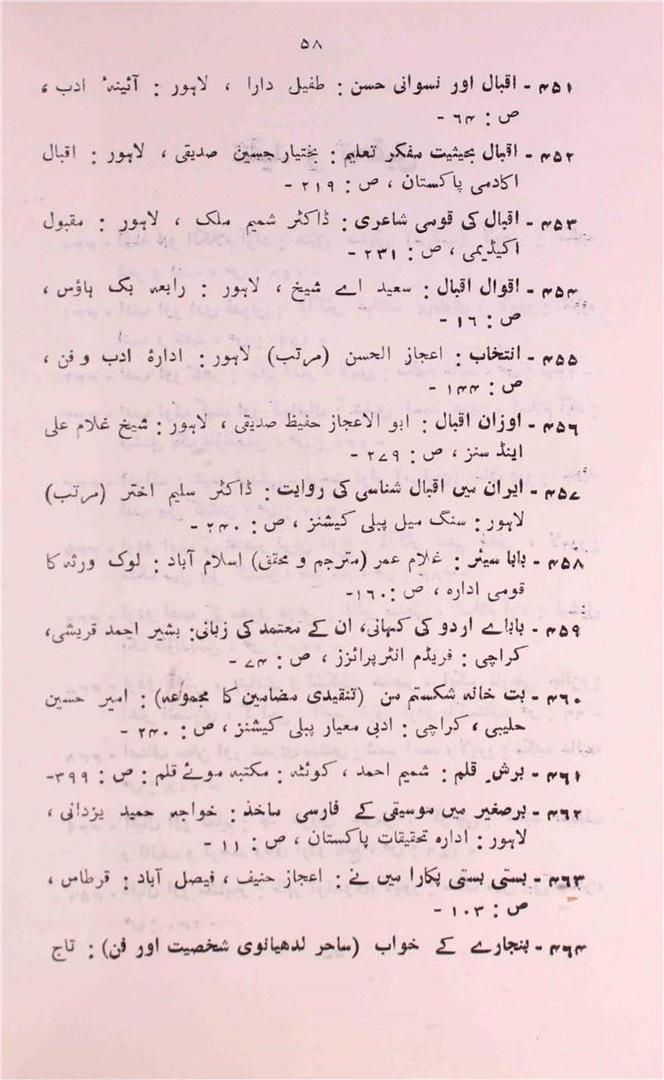 ۵۸
۴۵۱ - اقبال اور نسوانی حسن : طفیل دارا ، لاہور : آئینۂ ادب ،
ص : ۶۴ -
۴۵۲ - اقبال بحیثیت مفکر تعلیم : بختیار حسین صدیقی ، لاہور : اقبال
اکادمی پاکستان ، ص : ۲۱۹ -
۴۵۳ - اقبال کی قومی شاعری : ڈاکٹر شمیم ملک ، لاہور : مقبول
اکیڈیمی ، ص : ۲۳۱ -
۴۵۴ - اقوال اقبال : سعید اے شیخ ، لاہور : رابعہ بک ہاؤس ،
ص : ۱۶ -
۴۵۵ - انتخاب : اعجاز الحسن (مرتب) لاہور : ادارۂ ادب و فن ،
ص : ۱۴۴ -
۴۵۶ - اوزان اقبال : ابو الاعجاز حفیظ صدیقی ، لاہور : شیخ غلام علی
اینڈ سنز ، ص : ۲۷۹ -
۴۵۷ - ایران میں اقبال شناسی کی روایت : ڈاکٹر سلیم اختر (مرتب)
لاہور : سنگ میل پبلی کیشنز ، ص : ۲۴۰ -
۴۵۸ - بابا سیئر : غلام عمر (مترجم و محقق) اسلام آباد : لوک ورثہ کا
قومی ادارہ ، ص : ۱۶۰ -
۴۵۹ - باباے اردو کی کہانی، ان کے معتمد کی زبانی : بشیر احمد قریشی،
کراچی : فریڈم انٹرپرائزز ، ص : ۷۴ -
۴۶۰ - بت خانہ شکستم من (تنقیدی مضامین کا مجموعہ) : امیر حسین
حلیبی ، کراچی : ادبی معیار پبلی کیشنز ، ص : ۲۴۰ -
۴۶۱ - برش قلم : شمیم احمد ، کوئٹہ : مکتبہ موئے قلم : ص : ۳۹۹ -
۴۶۲ - برصغیر میں موسیقی کے فارسی ماخذ : خواجہ حمید یزدانی ،
لاہور : ادارہ تحقیقات پاکستان ، ص : ۱۱ -
۴۶۳ - بستی بستی پکارا میں نے : اعجاز حنیف ، فیصل آباد : قرطاس ،
ص : ۱۰۳ -
۴۶۴ - بنجارے کے خواب (ساحر لدھیانوی شخصیت اور فن) : تاج